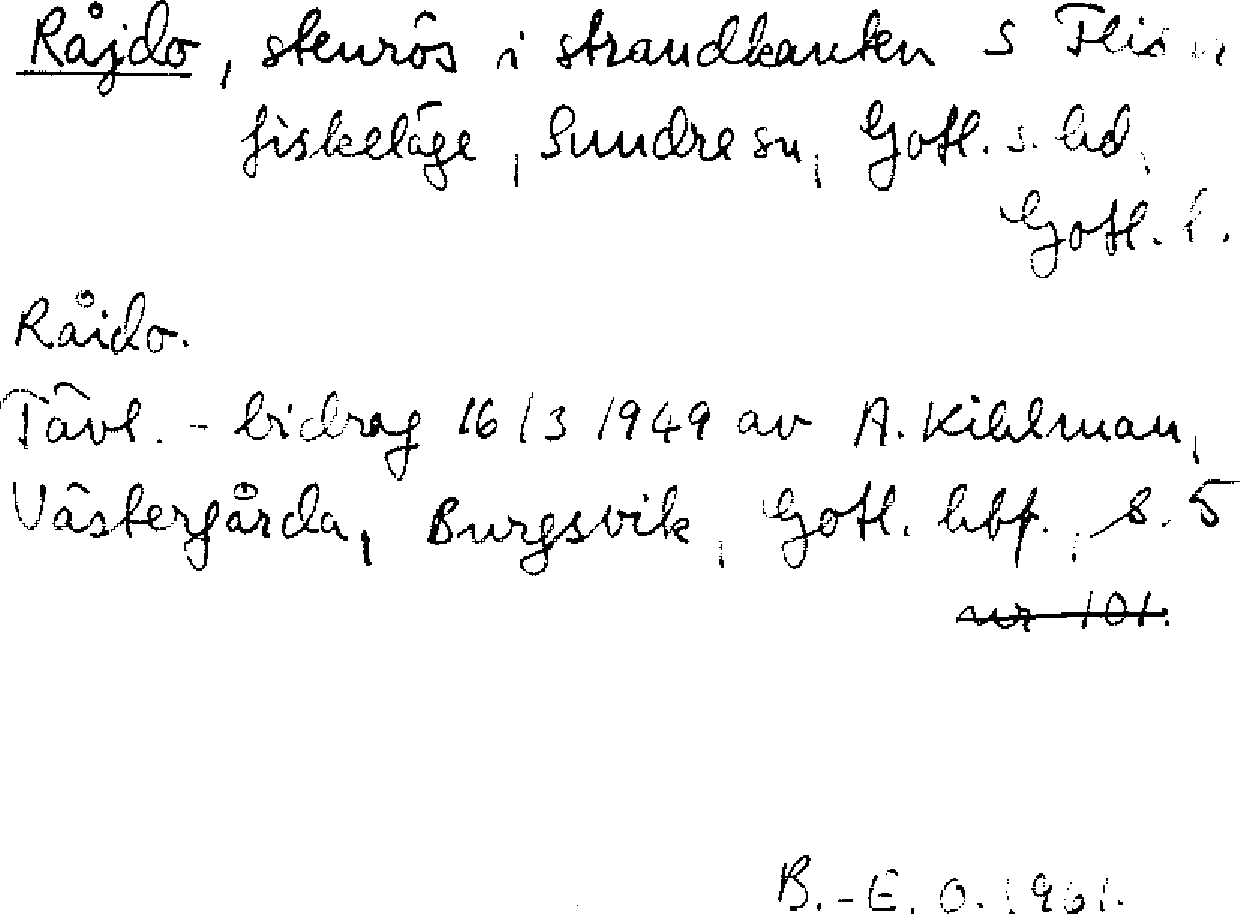 Råjdo, stenrös i strandkanten S
fiskeläge, Sundre sn, Gotl. s. hd,
Gotl. l.
Råido.
Tävl. - bidrag 16/3 1949 av A. Kihlman,
Västergårda, Burgsvik, Gotl. hbf., s. 5
nr 101.
B.-E. O. 1961.